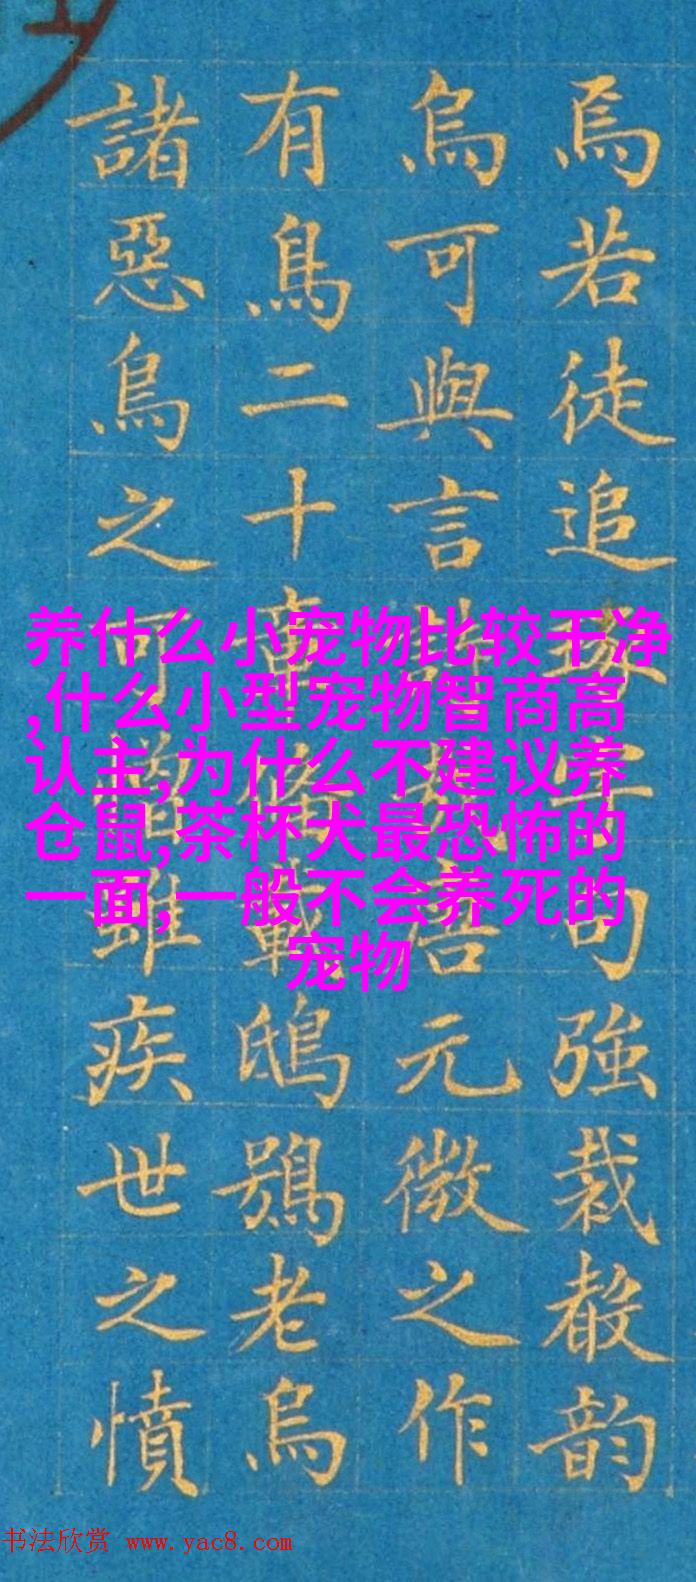 焉若徒追琢字句強裁韵
烏可與言詩哉唐元微之作
有鳥二十章備載鴟鴞老烏
諸惡鳥之可憎雖疾世之憤
养什么小宠物比较干净
,什么小型宠物智商高
认主,为什么不建议养
仓鼠,茶杯犬最恐怖的
一面,一般不会养死的
宠物
书法欣赏 www.yac8.com